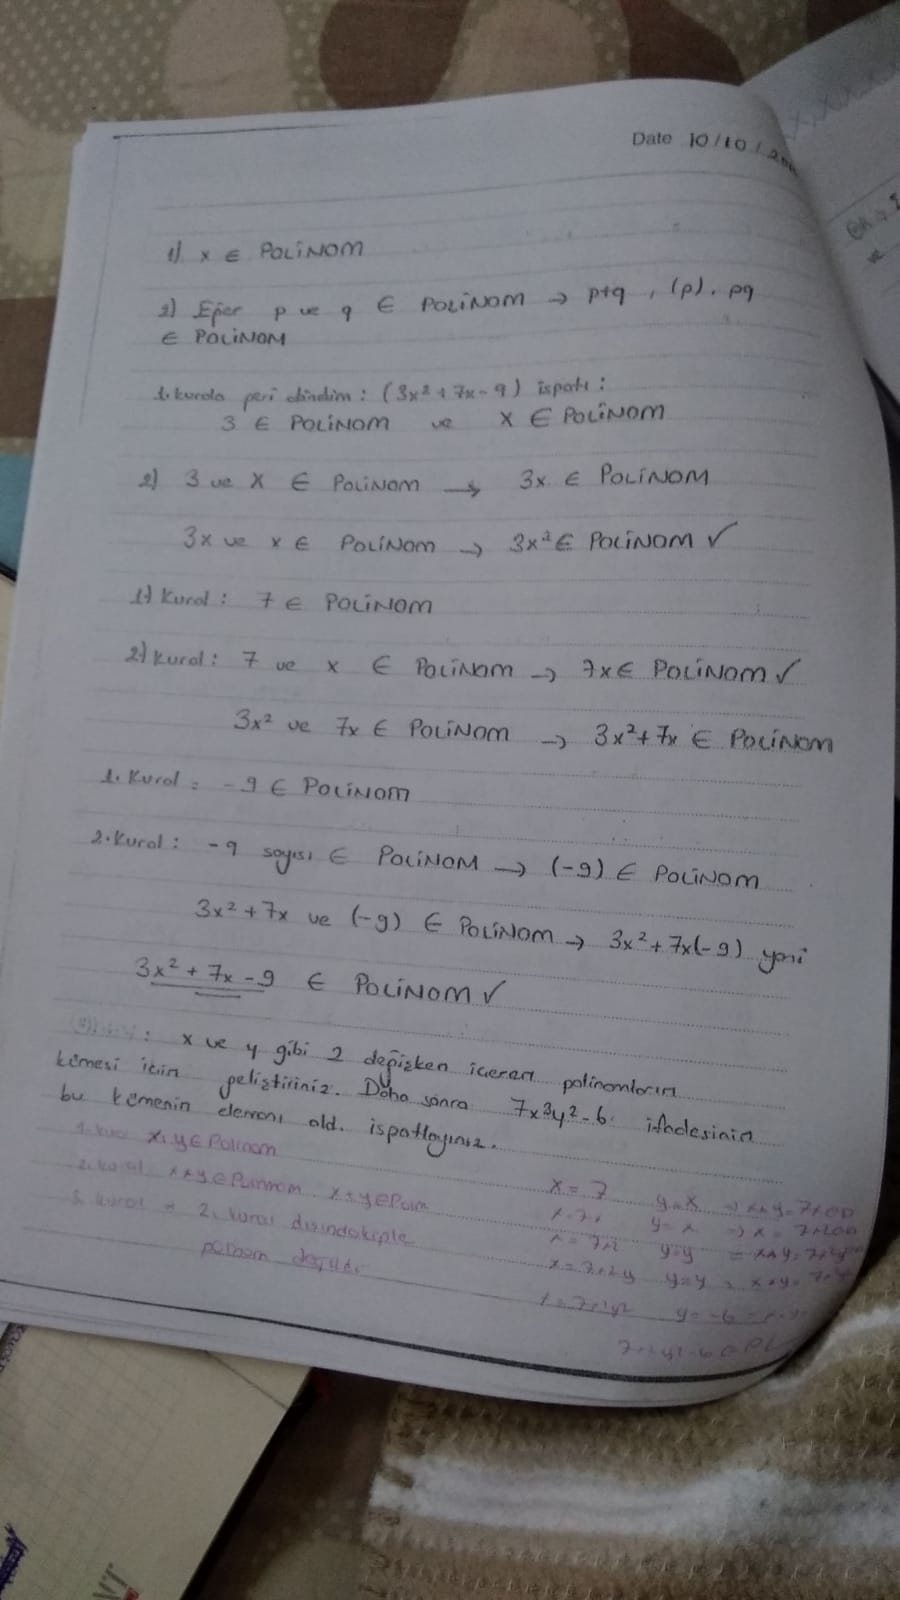 Date 10/10/20
1) x ∈ POLİNOM
2) Eğer p ve q ∈ POLİNOM → p+q , (p). pq
∈ POLİNOM
1. kurala geri döndüm : (3x² + 7x - 9) ispatı :
3 ∈ POLİNOM ve x ∈ POLİNOM
2) 3 ve x ∈ POLİNOM → 3x ∈ POLİNOM
3x ve x ∈ POLİNOM → 3x² ∈ POLİNOM ✓
1) Kural : 7 ∈ POLİNOM
2) Kural : 7 ve x ∈ POLİNOM → 7x ∈ POLİNOM ✓
3x² ve 7x ∈ POLİNOM → 3x² + 7x ∈ POLİNOM
1. Kural : -9 ∈ POLİNOM
2. Kural : -9 sayısı ∈ POLİNOM → (-9) ∈ POLİNOM
3x² + 7x ve (-9) ∈ POLİNOM → 3x² + 7x(-9) yani
3x² + 7x - 9 ∈ POLİNOM ✓
x ve y gibi 2 değişken içeren polinomların
kümesi için geliştiriniz. Daha sonra 7x³y² - 6 ifadesinin
bu kümenin elemanı old. ispatlayınız.
x, y ∈ Polinom
2. kural x+y ∈ Polinom x+y ∈
3. kural = 2. kural dışındakiler
polinom değildir
x = 7 y = x
y = x
y = y
x = 7x2y y = y
y = -6